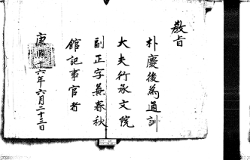 敎旨
朴慶後爲通訓
大夫行承文院
副正字兼春秋
館記事官者
康熙十六年六月二十三日